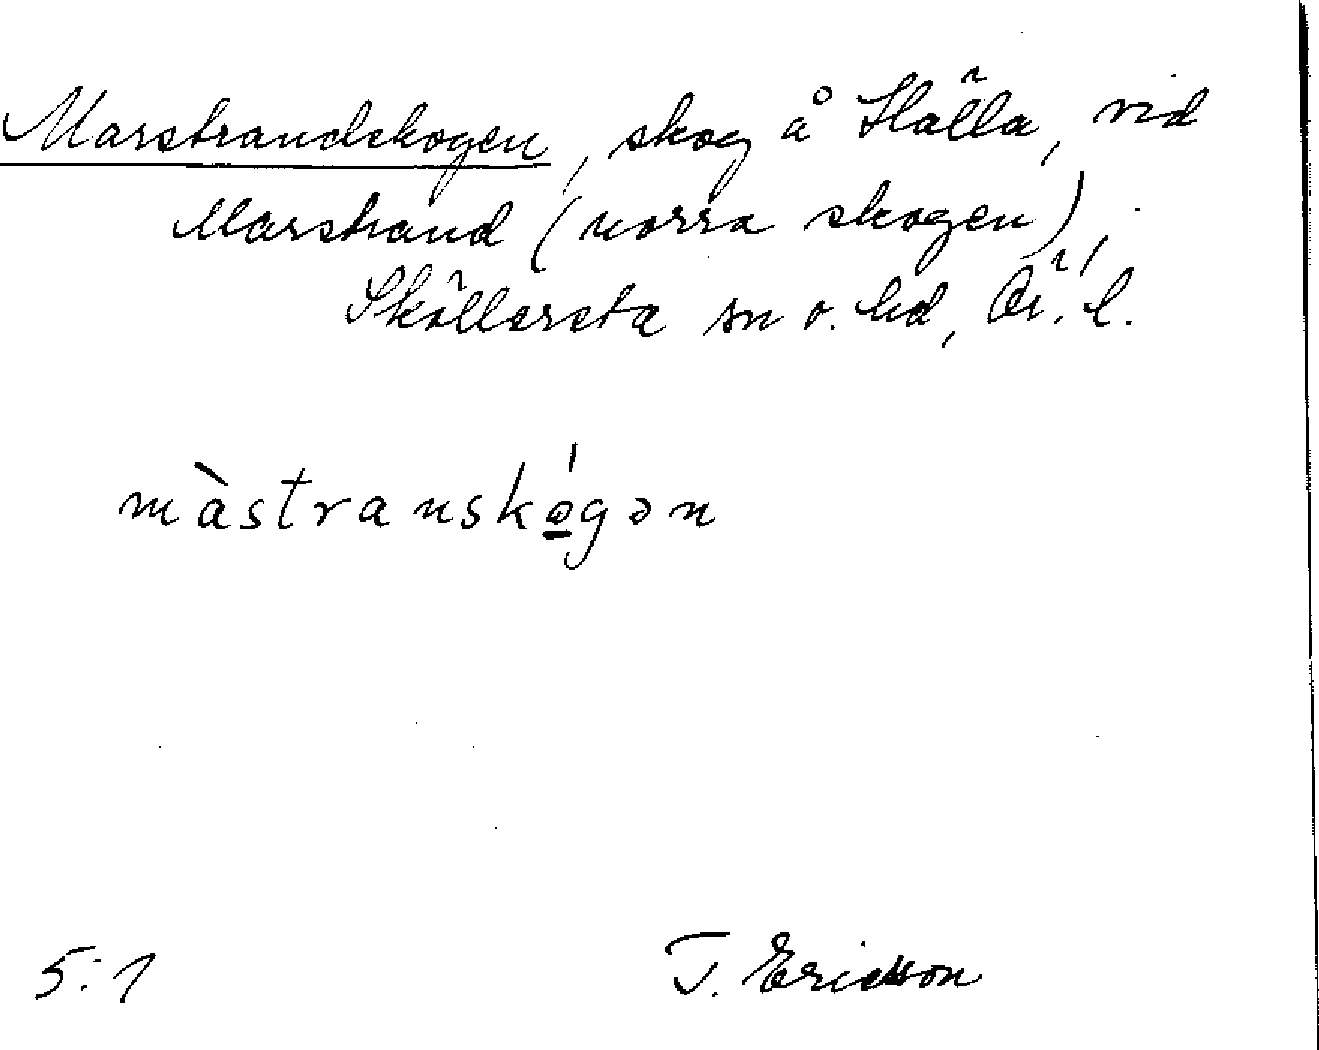 Marstrandskogen, skog å Hälla, vid
Marstrand (norra skogen),
Sköllersta sn o. hd, Ör. l.
màstranskó̱gən
5:1
T. Ericsson